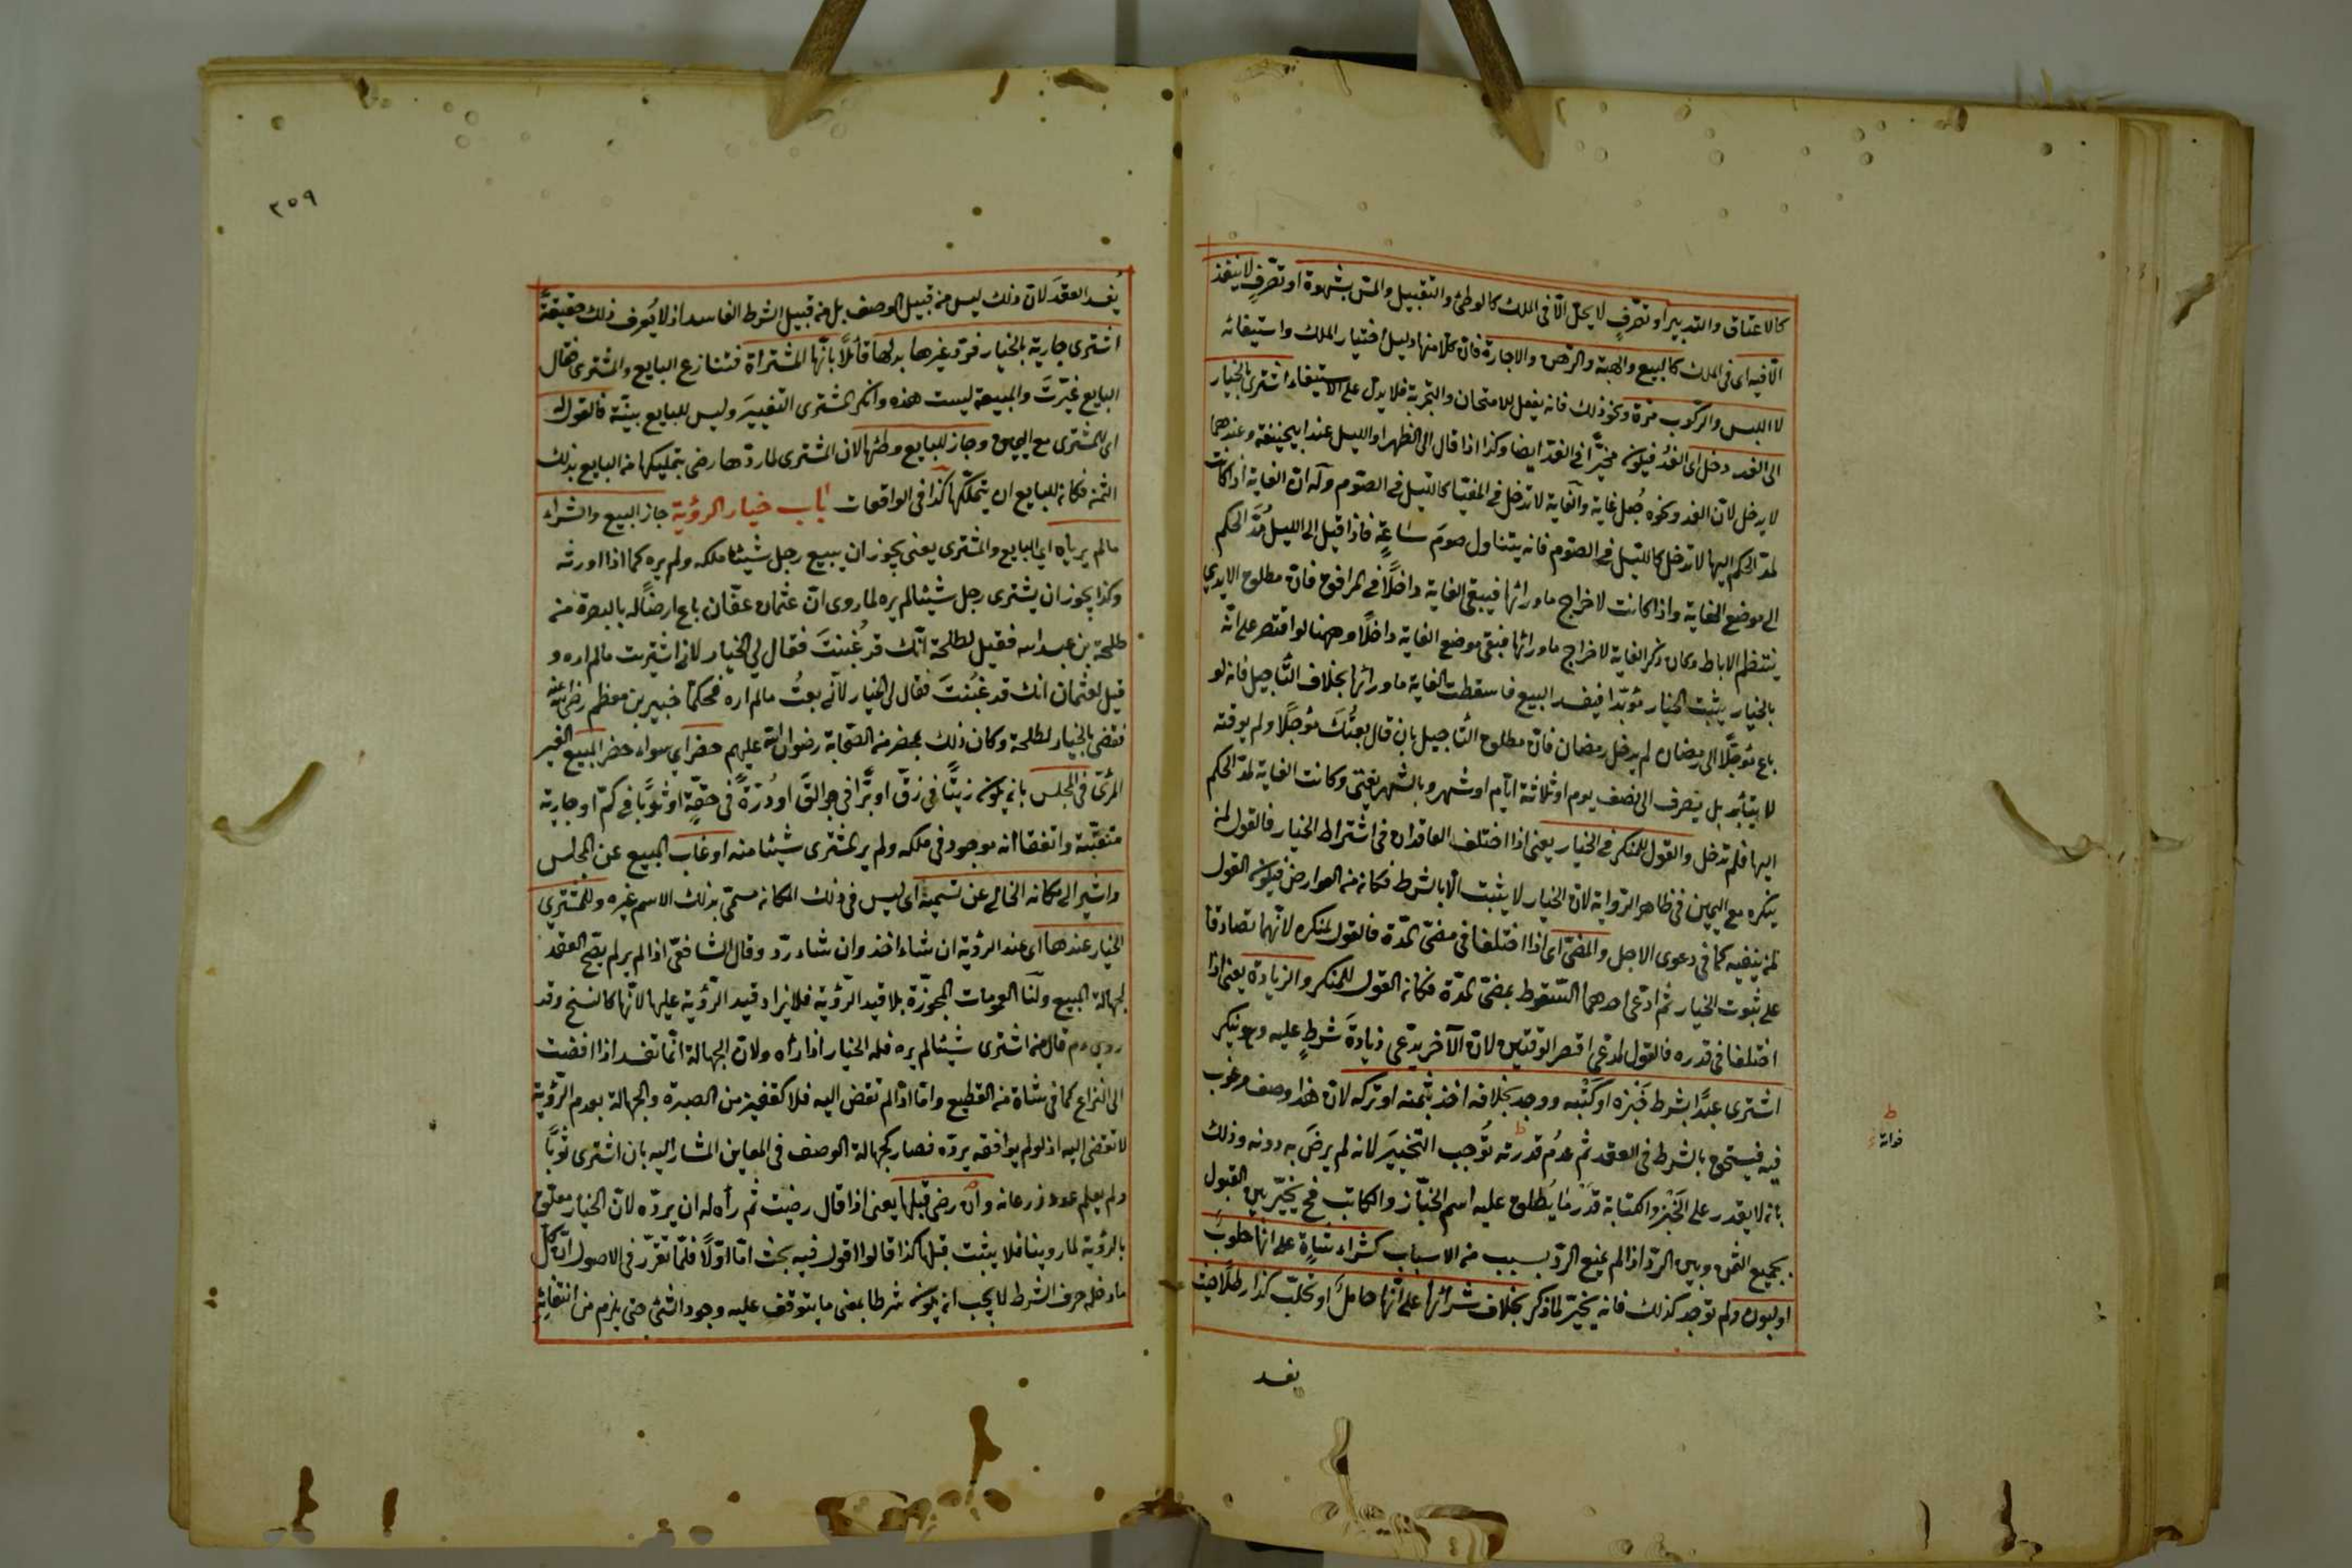 كالاعتاق والتدبير او تصرّفٍ لا يحلّ الّا فى الملك كالوطئ والتقبيل والمسّ بشهوة او تصرّفٍ لا ينفذ
الّا فيه اى فى الملك كالبيع والهبة والرّهن والاجارة فانّ كلّا منها دليل اختيار الملك واستيفائه
لا اللبس والركوب مرّة ونحو ذلك فانه يفعل للامتحان والتجربة فلا يدل على الاستيفاء اشترى بالخيار
الى الغد دخل اى الغدُ فيكون مخيّرًا فى الغد ايضا وكذا اذا قال الى الظهر او الليل عند ابيحنيفة وعندهما
لا يدخل لانّ الغد ونحوه جُعل غاية والغاية لا تدخل فى المغيّا كالليل فى الصّوم وله انّ الغاية اذا كانت
لمدّ الحكم اليها لا تدخل كالليل فى الصّوم فانه يتناول صومَ سَاعةٍ فاذا قيل الى الليل مُدَّ الحكم
الى موضع الغاية واذا كانت لاخراج ما ورائها فيبقى الغاية داخلًا فى المرافق فانّ مطلق الايدى
ينتظم الاباط وكان ذكر الغاية لاخراج ما ورائها فبقى موضع الغاية داخلًا وههنا لو اقتصر على انّه
بالخيار يثبت الخيار مؤبّدا فيفسد البيع فاسقطت الغاية ما ورائها بخلاف التّأجيل فانه لو
باع مؤجّلًا الى رمضان لم يدخل رمضان فانّ مطلق التأجيل بان قال بعتُكَ مؤجلًا ولم يوقته
لا يتأبّد بل ينصرف الى نصف يوم او ثلاثة ايّام او شهر وبالشهر يفتى وكانت الغاية لمدّ الحكم
اليها فلم تدخل والقول للمنكر فى الخيار يعنى اذا اختلف العاقدان فى اشتراط الخيار فالقول لمن
ينكره مع اليمين فى ظاهر الرّواية لانّ الخيار لا يثبت الّا بالشرط فكان من العوارض فيكون القول
لمن ينفيه كما فى دعوى الاجل والمضىّ اى اذا اختلفا فى مضىّ المدّة فالقول لمنكره لانّهما تصادقا
على ثبوت الخيار ثم ادّعى احدهما السّقوط بمضىّ المدّة فكان القول للمنكر والزيادة يعنى اذا
اختلفا فى قدره فالقول لمدّعى اقصر الوقتين لانّ الآخر يدّعى زيادةَ شرطٍ عليه وهو ينكر
اشترى عبدًا بشرط خَبْزه او كَتْبه ووجد بخلافه اخذ بثمنه او تركه لانّ هذا وصف مرغوب
فيه فيستحق بالشرط فى العقد ثم عدمُ قدرته تُوجب التخييرَ لانه لم يرضَ به دونه وذلك
بان لا يقدر على الخَبْز والكتابة قدرَ ما يُطلق عليه اسم الخبّاز والكاتب فح يخيّر بين القبول
بجميع الثمن وبين الردّ اذا لم يمنع الردّ بسبب من الاسباب كشراء شاةٍ على انها حلوبٌ
او لبون ولم توجد كذلك فانه يخيّر لما ذكر بخلاف شرائها على انّها حاملٌ او تحلبّ كذا رطلًا حيث
يفسد
ط
فواته
٣٥٩
يُفسد العقدَ لانّ ذلك ليس من قبيل الوصف بل من قبيل الشرط الفاسد اذ لا يُعرف ذلك حقيقةً
اشترى جارية بالخيار فردّ غيرها بدلها قائلًا بانّها المشتراة فتنازع البايع والمشترى فقال
البايع غيّرتَ والمبيعة ليست هذه وانكر المشترى التغييرَ وليس للبايع بيّنة فالقول له
اى للمشترى مع اليمين وجاز للبايع وطئها لان المشترى لما ردّها رضى بتمليكها من البايع بذلك
الثمن فكان للبايع ان يتملّكها كذا فى الواقعات باب خيار الرؤية جاز البيع والشراء
ما لم يرياه اى البايع والمشترى يعنى يجوز ان يبيع رجل شيئا ملكه ولم يره كما اذا اورثه
وكذا يجوز ان يشترى رجل شيئا لم يره لما روى انّ عثمان عفّان باع ارضًا له بالبصرة من
طلحة بن عبد الله فقيل لطلحة انّك قد غُبنتَ فقال لى الخيار لانى اشتريت ما لم اره و
قيل لعثمان انك قد غبُنتَ فقال لى الخيار لأنى بعتُ ما لم اره فحكما جبير بن معظم رضى الله عنه
فقضى بالخيار لطلحة وكان ذلك بمحضر من الصّحابة رضوان الله عليهم حضر اى سواء حضر المبيع الغير
المرئىّ فى المجلس بان يكون زيتًا فى زقّ او بُرًّا فى جوالقَ او دُرّةً فى حقّةٍ او ثوبًا فى كمّ او جارية
متنقّبة واتفقا انه موجود فى ملكه ولم ير المشترى شيئا منه او غاب المبيع عن المجلس
واشير الى مكانه الخالى عن تسميته اى ليس فى ذلك المكان مسمّى بذلك الاسم غيره وللمشترى
الخيار عندها اى عند الرؤية ان شاء اخذ وان شاء ردّ وقال الشافعىّ اذا لم ير لم يصحّ العقد
لجهالة المبيع ولنا العمومات المجوزّة بلا قيد الرّؤية فلا يزاد قيد الرّؤية عليها لانّها كالنسخ وقد
روى عم قال من اشترى شيئا لم يره فله الخيار اذا رأه ولانّ الجهالة انّما تفسد اذا افضت
الى النزاع كما فى شاة من القطيع وامّا اذا لم تفض اليه فلا كقفيز من الصبرة والجهالة بعدم الرّؤية
لا تفضى اليه اذ لو لم يوافقه يردّه فصار كجهالة الوصف فى المعاين المشار اليه بان اشترى ثوبًا
ولم يعلم عدد ذرعانه وان رضى قبلها يعنى اذا قال رضيت ثم رأه له ان يردّه لانّ الخيار معلّق
بالرؤية لما روينا فلا يثبت قبلها كذا قالوا اقول فيه بحث امّا اوّلًا فلما تقرّر فى الاصول انّ كلّ
ما دخله حرف الشرط لا يجب ان يكون شرطا بمعنى ما يتوقف عليه وجود الشئ حتى يلزم من انتفائه